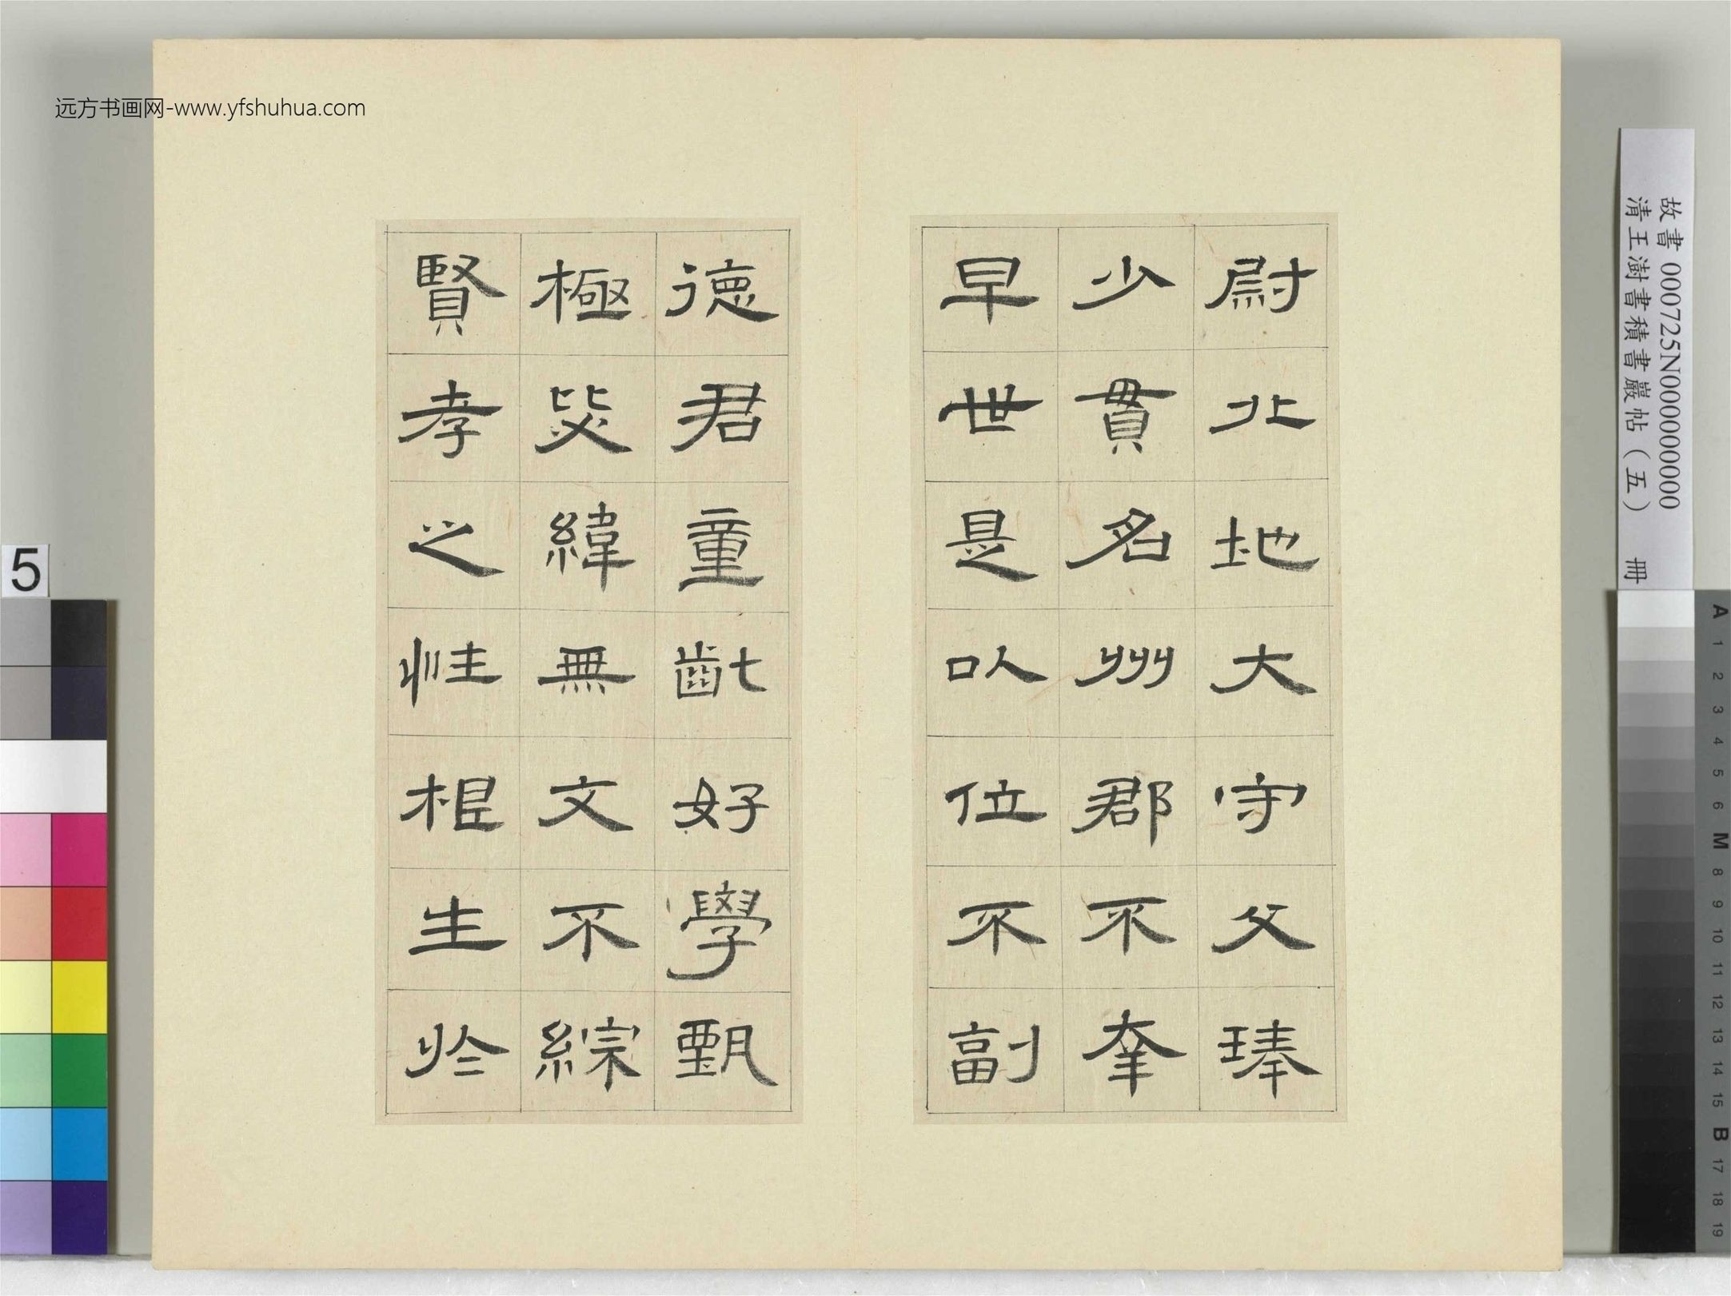 远方书画网-www.yfshuhua.com
尉北地大守父琫
少貫名州郡不幸
早世是以位不副
德君童齔好學甄
極毖緯無文不綜
賢孝之性根生於
故書 000725N000000000
清王澍書積書巖帖（五） 冊
5
A
1
2
3
4
5
6
M
8
9
10
11
12
13
14
15
B
17
18
19